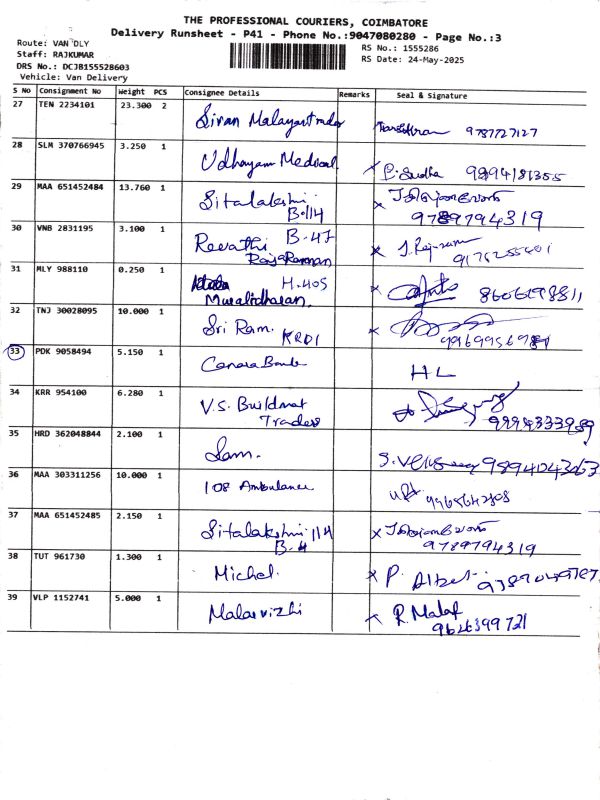 THE PROFESSIONAL COURIERS, COIMBATORE
Delivery Runsheet - P41 - Phone No.:9047080280 - Page No.:3
Route: VAN DLY
Staff: RAJKUMAR
DRS No.: DCJB155528603
Vehicle: Van Delivery
RS No.: 1555286
RS Date: 24-May-2025
S No Consignment No Weight PCS Consignee Details Remarks Seal & Signature
27 TEN 2234101 23.300 2 Sivan Malayan 9787727127
28 SLM 370766945 3.250 1 Udhayam Medical P. Sudha
29 MAA 651452484 13.760 1 Sitalakshmi B-114 9789794319
30 VNB 2831195 3.100 1 Revathi B-47
31 MLY 988110 0.250 1 H.405
Muralidharan 8606198811
32 TNJ 30028095 10.000 1 Sri Ram.
33 PDK 9058494 5.150 1 Canara Bank HL
34 KRR 954100 6.280 1 V.S. Buildmat
Traders 9994333989
35 HRD 362048844 2.100 1
36 MAA 303311256 10.000 1 108 Ambulance
37 MAA 651452485 2.150 1 Sitalakshmi 114
B-4 9789794319
38 TUT 961730 1.300 1 Michel. P. Albet
39 VLP 1152741 5.000 1 Malarvizhi R. Malar
9626399721